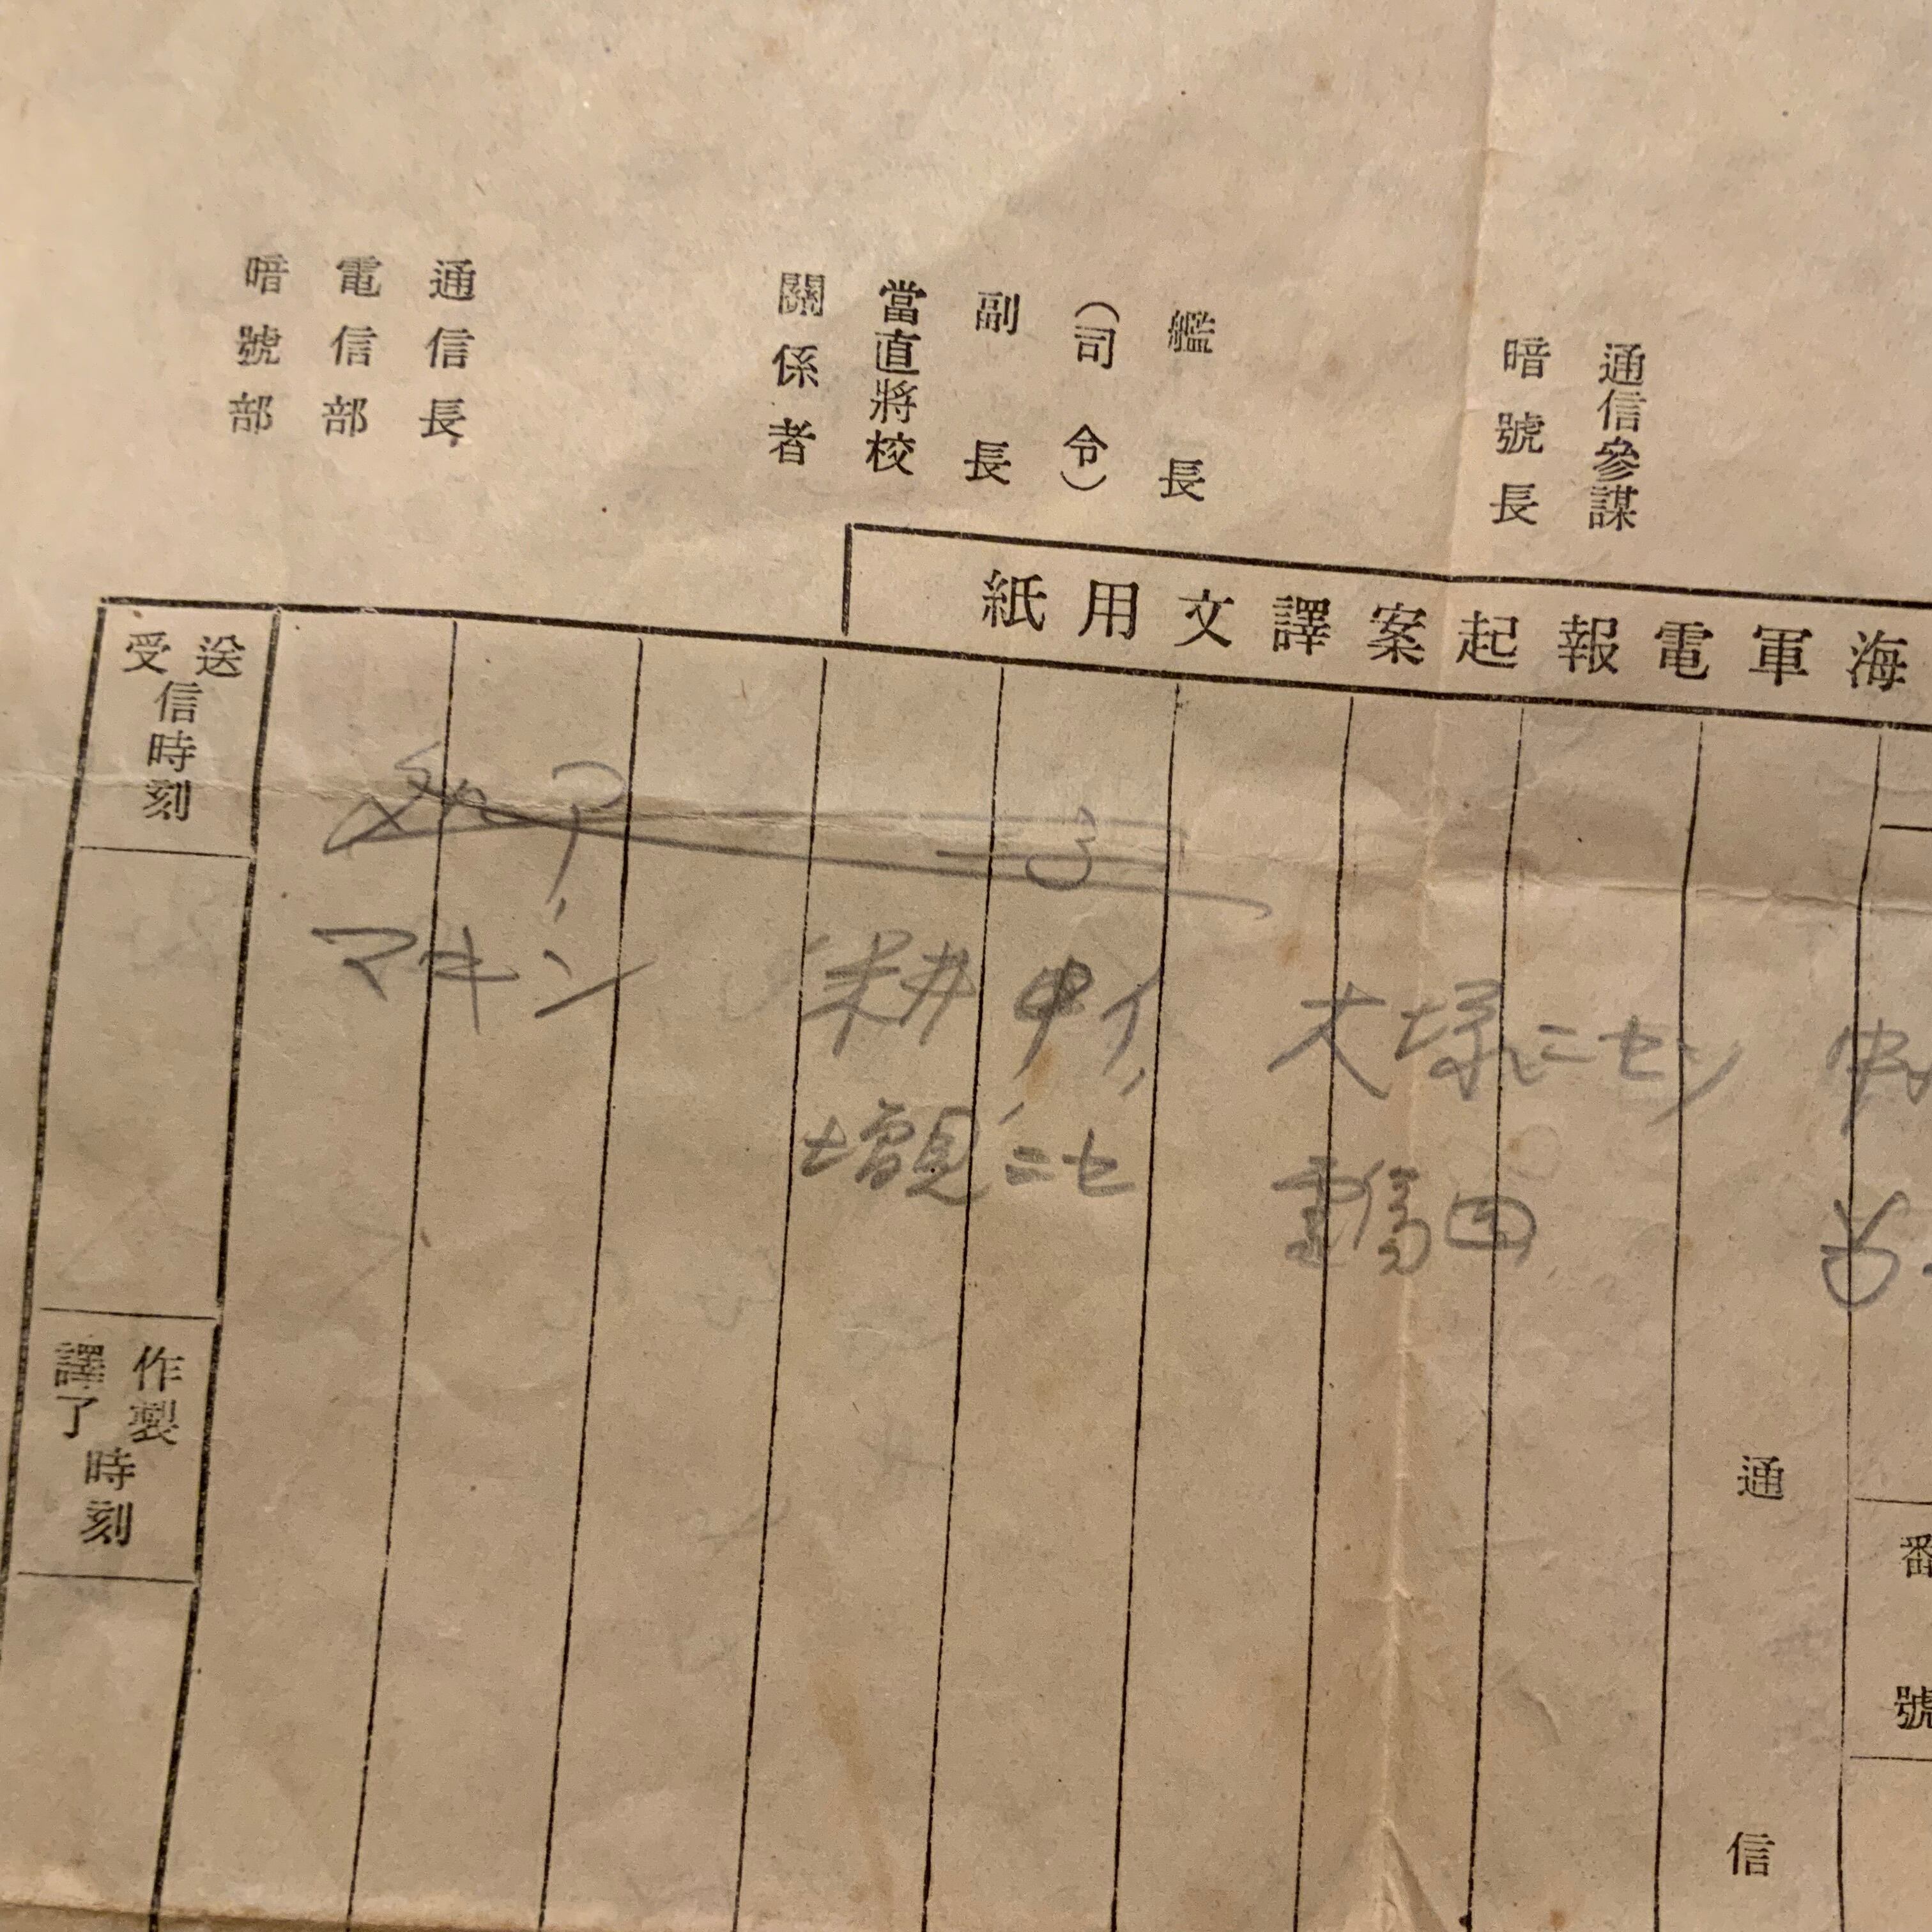 通信參謀
暗號長
艦長
(司令)
副長
當直將校
關係者
通信長
電信部
暗號部
海軍電報起案譯文用紙
送受信時刻
作製譯了時刻
通信
番號
マキン
耕中イ
大塚ニセン
増見ニセ